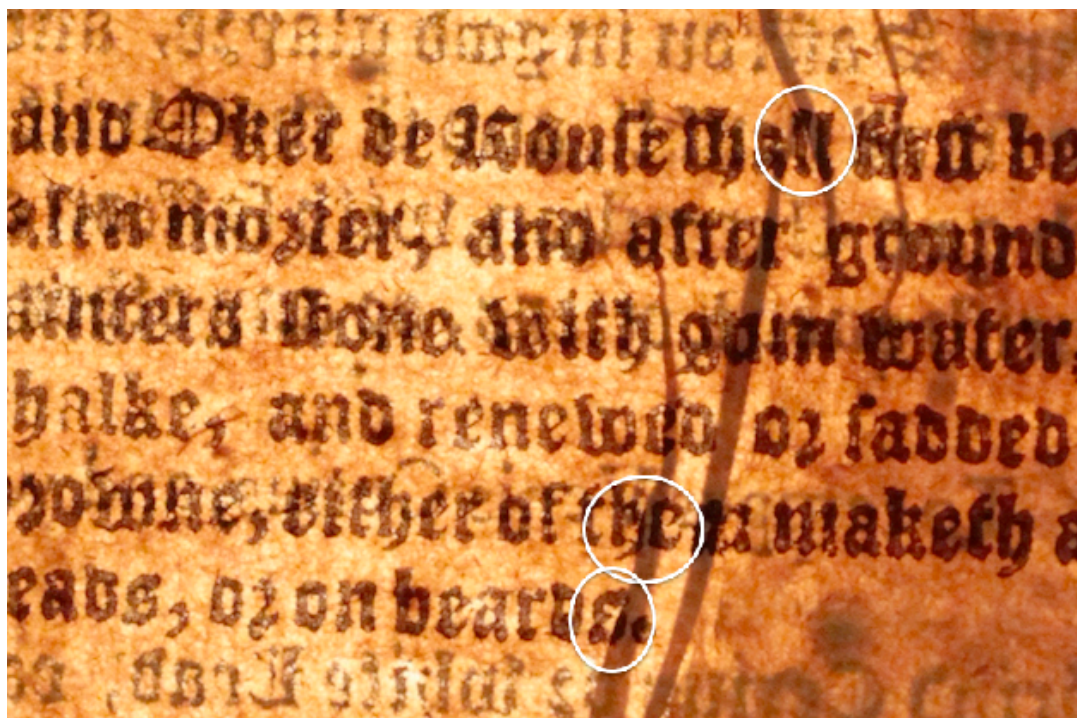 and Oker de Rouſe ſhall firſt be
aſen morter, and after ground
ainters ſtone with gum water,
halke, and renewed or ſadded
rowne, either of them maketh a
eads, or on beards.